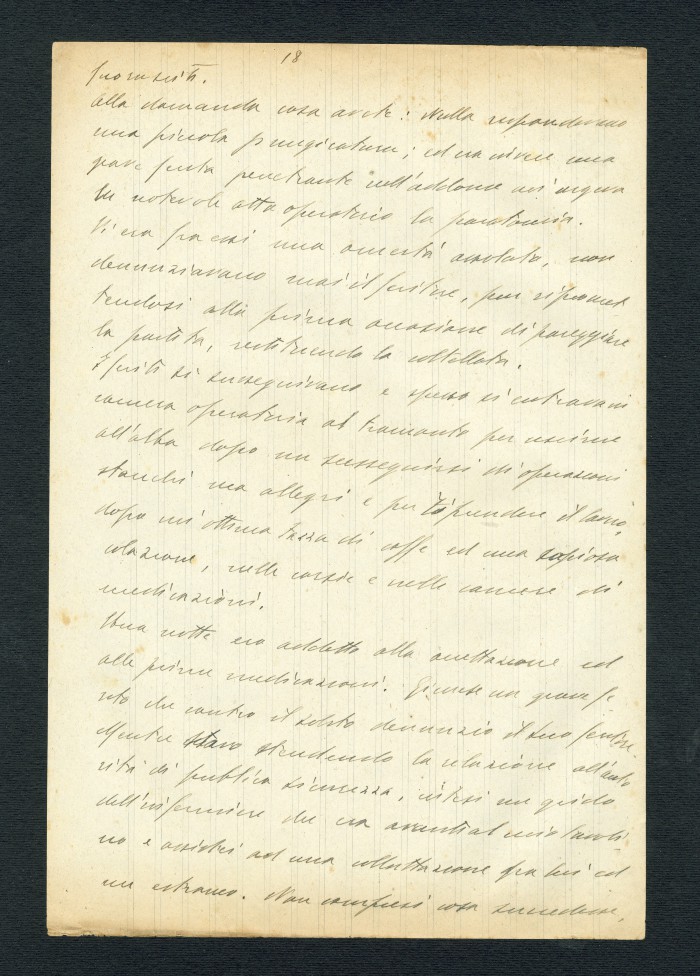 18
fuorusciti.
Alla domanda cosa avete: Nulla rispondevano
una piccola pungicatura; ed era invece una
grave ferita penetrante nell'addome
un notevole atto operatorio la paratomia.
Vi era fra essi una omertà assoluta, non
denunziavano mai il feritore, pur ripromet
tendosi alla prima occasione di pareggiare
la partita, restituendo la coltellata.
I feriti si susseguivano e spesso si entrava in
camera operatoria al tramonto per uscirne
all'alba dopo un susseguirsi di operazioni
stanchi ma allegri e per riprendere il lavoro,
dopo un'ottima tazza di caffe ed una copiosa
colazione, nelle corsie e nelle camere di
medicazioni.
Una notte ero addetto alla accettazione ed
alle prime medicazioni. Giunse un grave fe
rito che contro il solito denunziò il suo feritore.
Mentre stavo stendendo la relazione all'auto
rità di pubblica sicurezza, intesi un grido
dell'infermiere che era avanti al mio tavoli
no e assistei ad una colluttazione fra lui ed
un estraneo. Non compresi cosa succedesse,